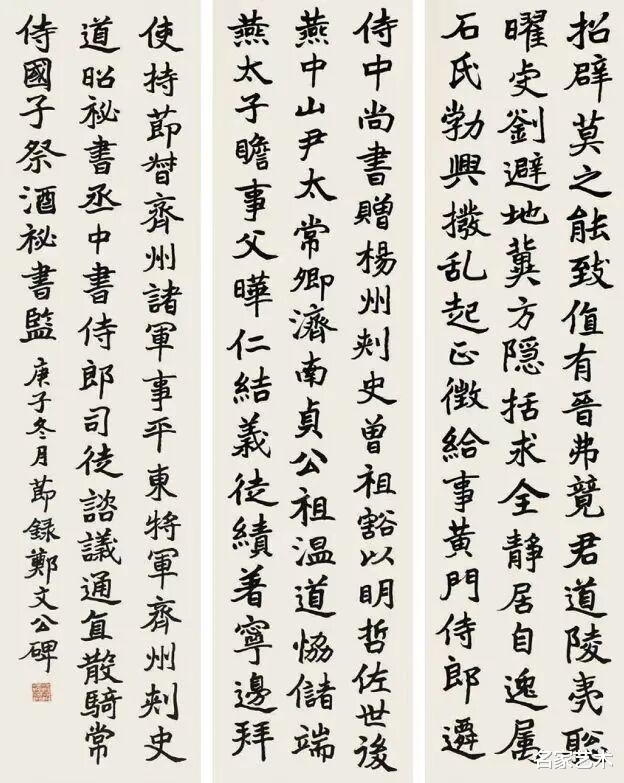 招辟莫之能致值有晉弗競君道陵夷聡
曜虔劉避地冀方隱括求全靜居自逸属
石氏勃興撥乱起正徵給事黃門侍郎遷
侍中尚書贈楊州刾史曾祖豁以明哲佐世後
燕中山尹太常卿濟南貞公祖温道協儲端
燕太子瞻事父曄仁結義徒績著寧邊拜
使持莭督齊州諸軍事平東將軍齊州刾史
道昭祕書丞中書侍郎司徒諮議通直散騎常
侍國子祭酒祕書監
庚子冬月莭録鄭文公碑
名家艺术